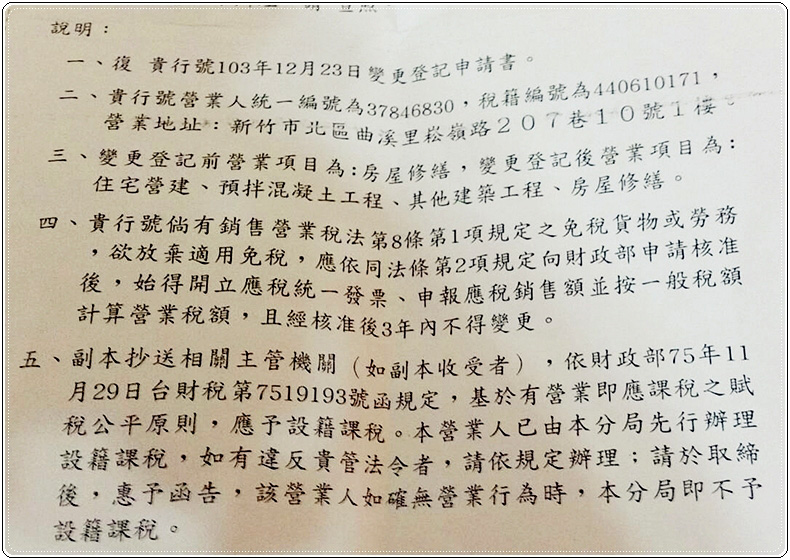 說明：
一、復 貴行號103年12月23日變更登記申請書。
二、貴行號營業人統一編號為37846830，稅籍編號為440610171，
營業地址：新竹市北區曲溪里崧嶺路２０７巷１０號１樓
三、變更登記前營業項目為:房屋修繕，變更登記後營業項目為:
住宅營建、預拌混凝土工程、其他建築工程、房屋修繕。
四、貴行號倘有銷售營業稅法第8條第1項規定之免稅貨物或勞務
，欲放棄適用免稅，應依同法條第2項規定向財政部申請核准
後，始得開立應稅統一發票、申報應稅銷售額並按一般稅額
計算營業稅額，且經核准後3年內不得變更。
五、副本抄送相關主管機關（如副本收受者），依財政部75年11
月29日台財稅第7519193號函規定，基於有營業即應課稅之賦
稅公平原則，應予設籍課稅。本營業人已由本分局先行辦理
設籍課稅，如有違反貴管法令者，請依規定辦理；請於取締
後，惠予函告，該營業人如確無營業行為時，本分局即不予
設籍課稅。